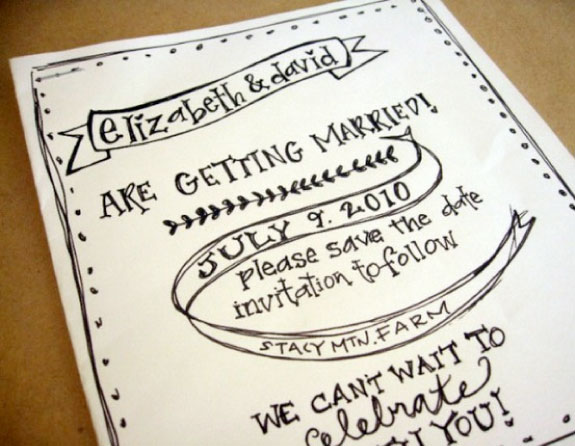 elizabeth & david
ARE GETTING MARRIED!
JULY 9. 2010
please save the date
invitation to follow
STACY MTN. FARM
WE CAN'T WAIT TO
celebrate
YOU!